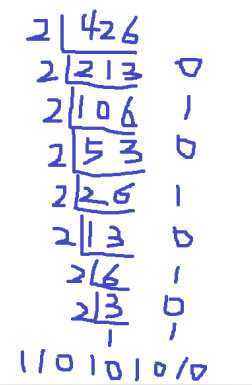 2 426
2 213 0
2 106 1
2 53 0
2 26 1
2 13 0
2 6 1
2 3 0
1 1
110101010